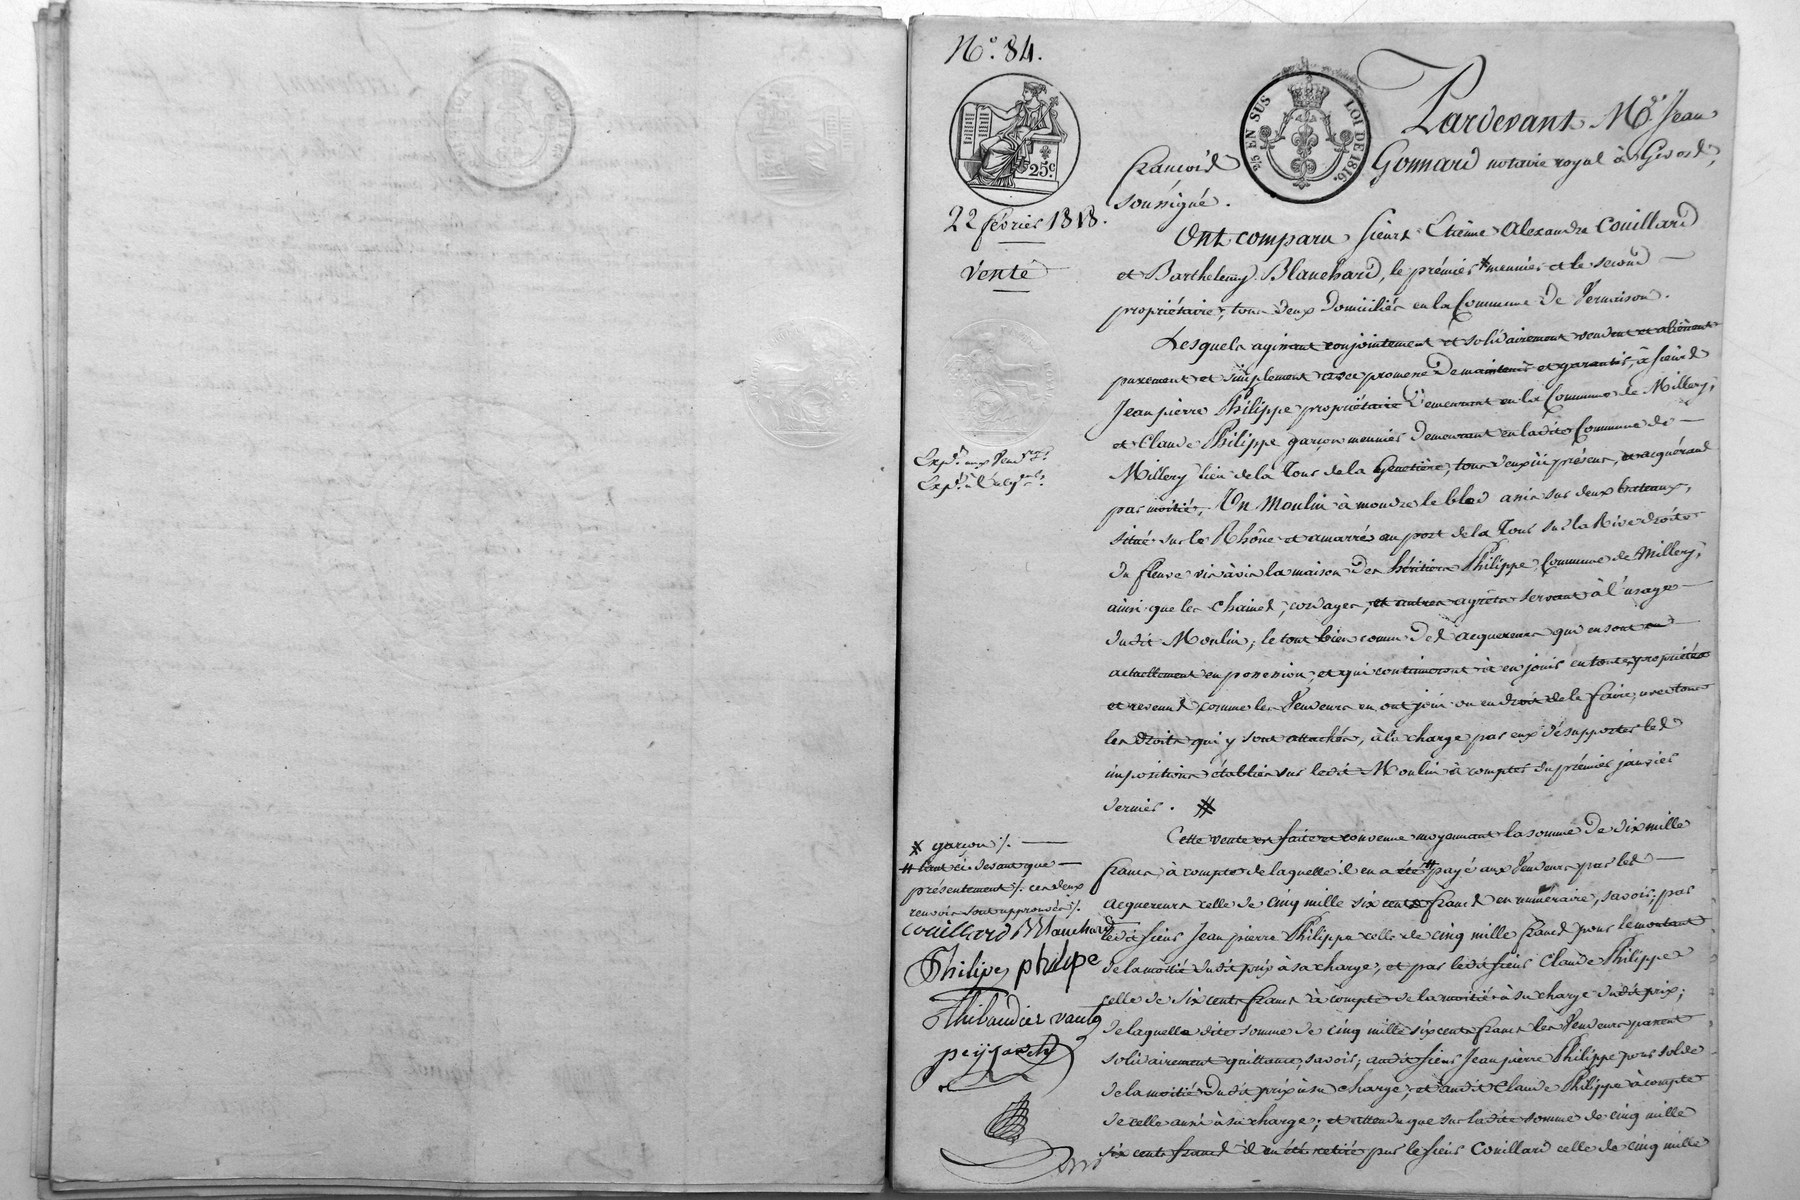 N.° 84.
25 EN SUS
LOI DE 1816.
25.c
22 février 1818.
vente
Pardevant M.e Jean
François Gonnard notaire royal à Givors,
soussigné.
Ont comparu sieurs Etienne Alexandre Couillard
et Barthelemy Blanchard, le prémier * meunier et le second
propriétaire, tous deux domiciliés en la Commune de Vernaison.
Lesquels agissant conjointement et solidairement vendent et aliénent
purement et simplement avec promesse de maintenir et garantir, à sieurs
Jean pierre Philippe propriétaire demeurant en la Commune de Millery,
et Claude Philippe garçon meunier demeurant en ladite Commune de
Millery lieu de la Tour de la Genetière, tous deux ici présens, et acquérans
par moitié, Un Moulin à moudre le bled assis sur deux bateaux,
situé sur le Rhône et amarré au port de la Tour sur la Rive droite
du fleuve vis à vis la maison des héritiers Philippe, Commune de Millery,
ainsi que les chaines, cordages, et autres agrèts servant à l'usage
dudit Moulin; le tout bien connu des acquereurs qui en sont
actuellement en possession, et qui continueront à en jouir en toute propriété
et revenus comme les Vendeurs en ont joui ou eu droit de le faire, avec tous
les droits qui y sont attachés, à la charge par eux de supporter les
impositions établies sur ledit Moulin à compter du prémier janvier
dernier. #
Cette vente est faite et convenue moyennant la somme de dix mille
francs à compte de laquelle il en a été # payé aux Vendeurs par les
acquereurs celle de cinq mille six cents francs en numéraire, savoir; par
ledit sieur Jean pierre Philippe celle de cinq mille francs pour le montant
de la moitié dudit prix à sa charge, et par ledit sieur Claude Philippe
celle de six cents francs à compte de la moitié à sa charge dudit prix;
de laquelle dite somme de cinq mille six cents francs les Vendeurs passent
solidairement quittance, savoir; audit sieur Jean pierre Philippe pour solde
de la moitié dudit prix à sa charge; et audit Claude Philippe à compte
de celle aussi à sa charge; et attendu que sur ladite somme de cinq mille
six cents francs il en été retiré par le sieur Couillard celle de cinq mille
Exp.on aux Vend.rs
* garçon /.
# tant ci devant que
présentement /. ces deux
renvois sont approuvés /.
Couillard Blanchard
Philipe philipe
Thibaudier